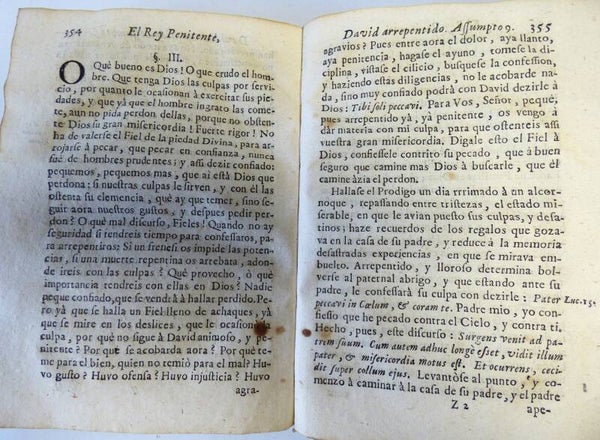 354 El Rey Penitente,
§. III.
O Què bueno es Dios! O que crudo el hom-
bre. Que tenga Dios las culpas por servi-
cio, por quanto le ocasionan à exercitar sus pie-
dades, y que yà que el hombre ingrato las come-
te, aun no pida perdon dellas, porque no obsten-
te Dios su gran misericordia! Fuerte rigor! No
ha de valerse el Fiel de la piedad Divina, para ar-
rojarse à pecar, que pecar en confiança, nunca
fuè de hombres prudentes; y assi dezir confiado:
pequemos, pequemos mas, que ai està Dios que
perdona: si nuestras culpas le sirven, y con èl las
ostenta su clemencia, què ay que temer, sino se-
guir aora nuestros gustos, y despues pedir per-
don? O què mal discurso, Fieles! Quando no ay
seguridad si tendreis tiempo para confessaros, pa-
ra arrepentiros; Si un frenesì os impide las poten-
cias, si una muerte repentina os arrebata, adon-
de ireis con las culpas? Què provecho, ò què
importancia tendreis con ellas en Dios? Nadie
peque confiado, que se vendrà à hallar perdido. Pe-
ro yà que se halla un Fiel lleno de achaques, yà
que se mire en los deslices, que le ocasionò la
culpa, por què no sigue à David animoso, y pe-
nitente? Por què se acobarda aora? Por què te-
me para el bien, quien no temiò para el mal? Huvo
gusto? Huvo ofensa? Huvo injusticia? Huvo
agra-
David arrepentido. Assumpto 9. 355
agravios? Pues entre aora el dolor, aya llanto,
aya penitencia, hagase el ayuno, tomese la di-
ciplina, vistase el cilicio, busquese la confession,
y haziendo estas diligencias, no le acobarde na-
da, sino muy confiado podrà con David dezirle à
Dios: Tibi soli peccavi. Para Vos, Señor, pequè,
pues arrepentido yà, ya penitente, os vengo à
dàr materia con mi culpa, para que ostenteis assi
vuestra gran misericordia. Digale esto el Fiel à
Dios, confiessele contrito su pecado, que à buen
seguro que camine mas Dios à buscarle, que èl
camine àzia el perdon.
Hallase el Prodigo un dia rrimado à un alcor-
noque, repassando entre tristezas, el estado mi-
serable, en que le avian puesto sus culpas, y desa-
tinos; haze recuerdos de los regalos que goza-
va en la casa de su padre, y reduce à la memoria
desastradas experiencias, en que se mirava em-
buelto. Arrepentido, y lloroso determina bol-
verse al paternal abrigo, y que estando ante su
padre, le confessarà su culpa con dezirle: Pater Luc. 15.
peccavi in Cælum, & coram te. Padre mio, yo con-
fiesso que he pecado contra el Cielo, y contra ti.
Hecho, pues, este discurso: Surgens venit ad pa-
trem suum. Cum autem adhuc longè esset, vidit illum
pater, & misericordia motus est. Et ocurrens, ceci-
dit super collum ejus. Levantòse al punto, y co
menzo à caminar à la casa de su padre, y el padre
Z 2 ape-